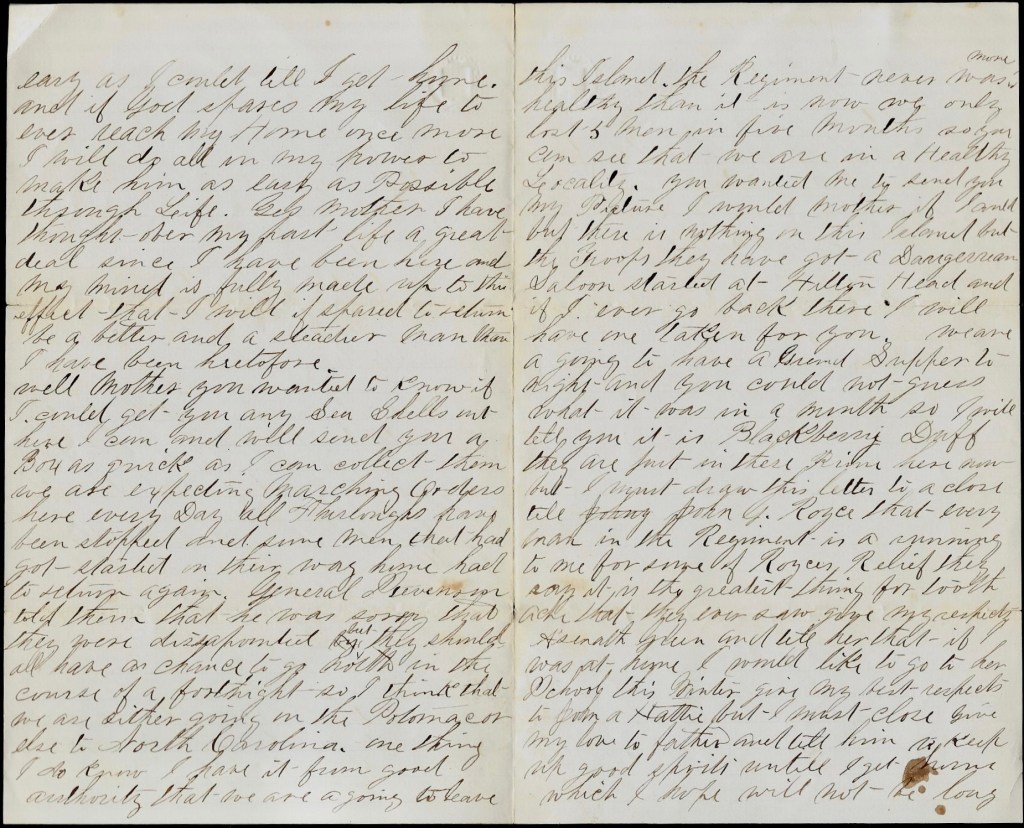 easy as I could till I get hime.
and if God spares my life to
ever reach my Home once more
I will do all in my power to
make him as easy as Possible
through Leife. Yes Mother I have
thought over my past life a great
deal since I have been here and
my mind is fully made up to this
effect that I will if spared to return
be a better and a steadier man than
I have been heretofore.
well Mother you wanted to know if
I could get you any Sea Shells out
here I can and will send you a
Box as quick as I can collect them
we are expecting Marching Orders
here every Day all Thurloughs have
been stopped and some men that had
got started on their way home had
to return again. General
told them that he was sorry that
they were dissapointed but they should
all have a chance to go North in the
course of a fortnight so I think that
we are Either going on the Potomac or
else to North Carolina. one thing
I do know I have it from good
authority that we are a going to leave
this Island. the Regiment never was more
healthy than it is now we only
lost 5 men in five months so you
can see that we are in a Healthy
Leocality. you wanted me to send you
my Picture I would mother if I could
but there is nothing on this Island but
the troops they have got a Daugerrean
Saloon started at Hilton Head and
if I ever go back there I will
have one taken for you. we are
a going to have a Grand Supper to
night and you could not guess
what it was in a month so I will
tell you it is Blackberrie Duff
they are just in there Prime here now
but I must draw this letter to a close
tell John G. Royce that every
man in the Regiment is a running
to me for some of Royces Relief they
say it is the greatest thing for tooth
ache that they ever saw give my respects
Asenath Green and tell her that if
was at hime I would like to go to her
School this Winter give my best respects
to John & Hattie but I must close give
my love to father and tell him to keep
up good spirits untill I get hime
which I hope will not be long